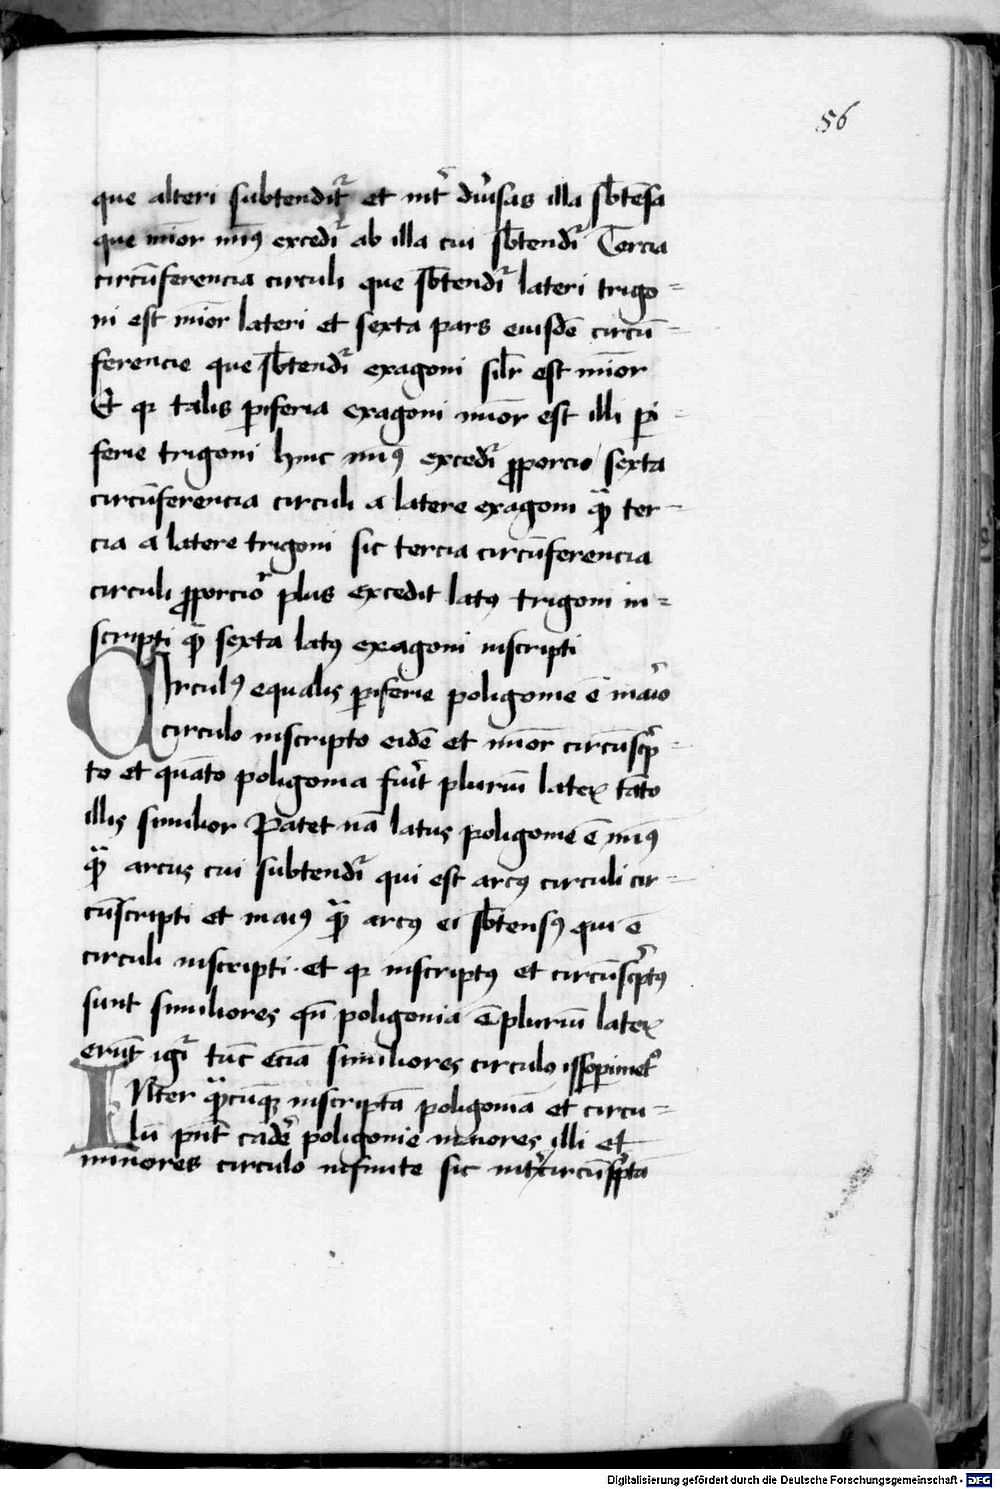 56
que alteri subtendit᷑ et int᷑ diu᷑sas illa sb̅tēsa
que mīor minꝰ excedi᷑ ab illa cui sb̅tendi᷑ Tercia
circūferencia circuli que sb̅tendi᷑ lateri trigo=
ni est mīor lateri et sexta pars eiusdē circū=
ferencie que sb̅tendi᷑ exagoni sil᷑r est mīor
Et qꝛ talis ꝑiferia exagoni mīor est illi ꝑi
ferie trigoni hinc minꝰ excedi᷑ ꝓporcio sexta
circūferencia circuli a latere exagoni qȝ̄ ter=
cia a latere trigoni sic tercia circūferencia
circuli ꝓporcio᷑ plus excedit latꝰ trigoni in=
scripti qȝ̄ sexta latꝰ exagoni inscripti
Circulꝰ equalis ꝑiferie poligonie ē maio᷑
circulo inscripto eidē et mīor circūscp᷑=
to et quāto poligonia fu᷑it pluriū lateꝝ tāto
illis similior Patet nā latus poligonie ē minꝰ
qȝ̄ arcus cui subtendi᷑ qui est arcꝰ circuli cir=
cūscripti et maiꝰ qȝ̄ arcꝰ ei sb̅tensꝰ qui ē
circuli inscripti · et qꝛ inscriptꝰ et circūscp᷑tꝰ
sunt similiores qn̄ poligonia ē pluriū lateꝝ
erūt igi᷑ tūc eciā similiores circulo issoꝑimet᷑
Inter qȝ̄cūqꝫ inscriptā poligoniā et circu=
lū pn̄t cade᷑ poligonie maiores illi et
minores circulo infinite sic int᷑ circūsp᷑tā
Digitalisierung gefördert durch die Deutsche Forschungsgemeinschaft - DFG